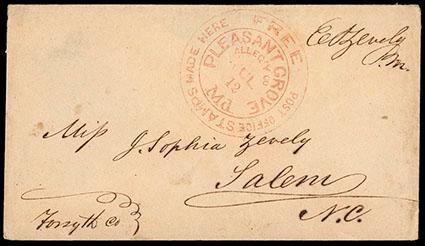 FREE
POST OFFICE STAMPS MADE HERE
PLEASANT GROVE MD
ALLEGY Co
JUL
12
E S Zevely
P.M.
Miſs J. Sophia Zevely
Salem
N.C.
Forsyth Co